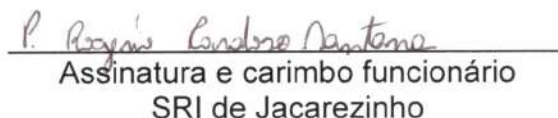 P. Rogério Cardoso Santana
Assinatura e carimbo funcionário
SRI de Jacarezinho